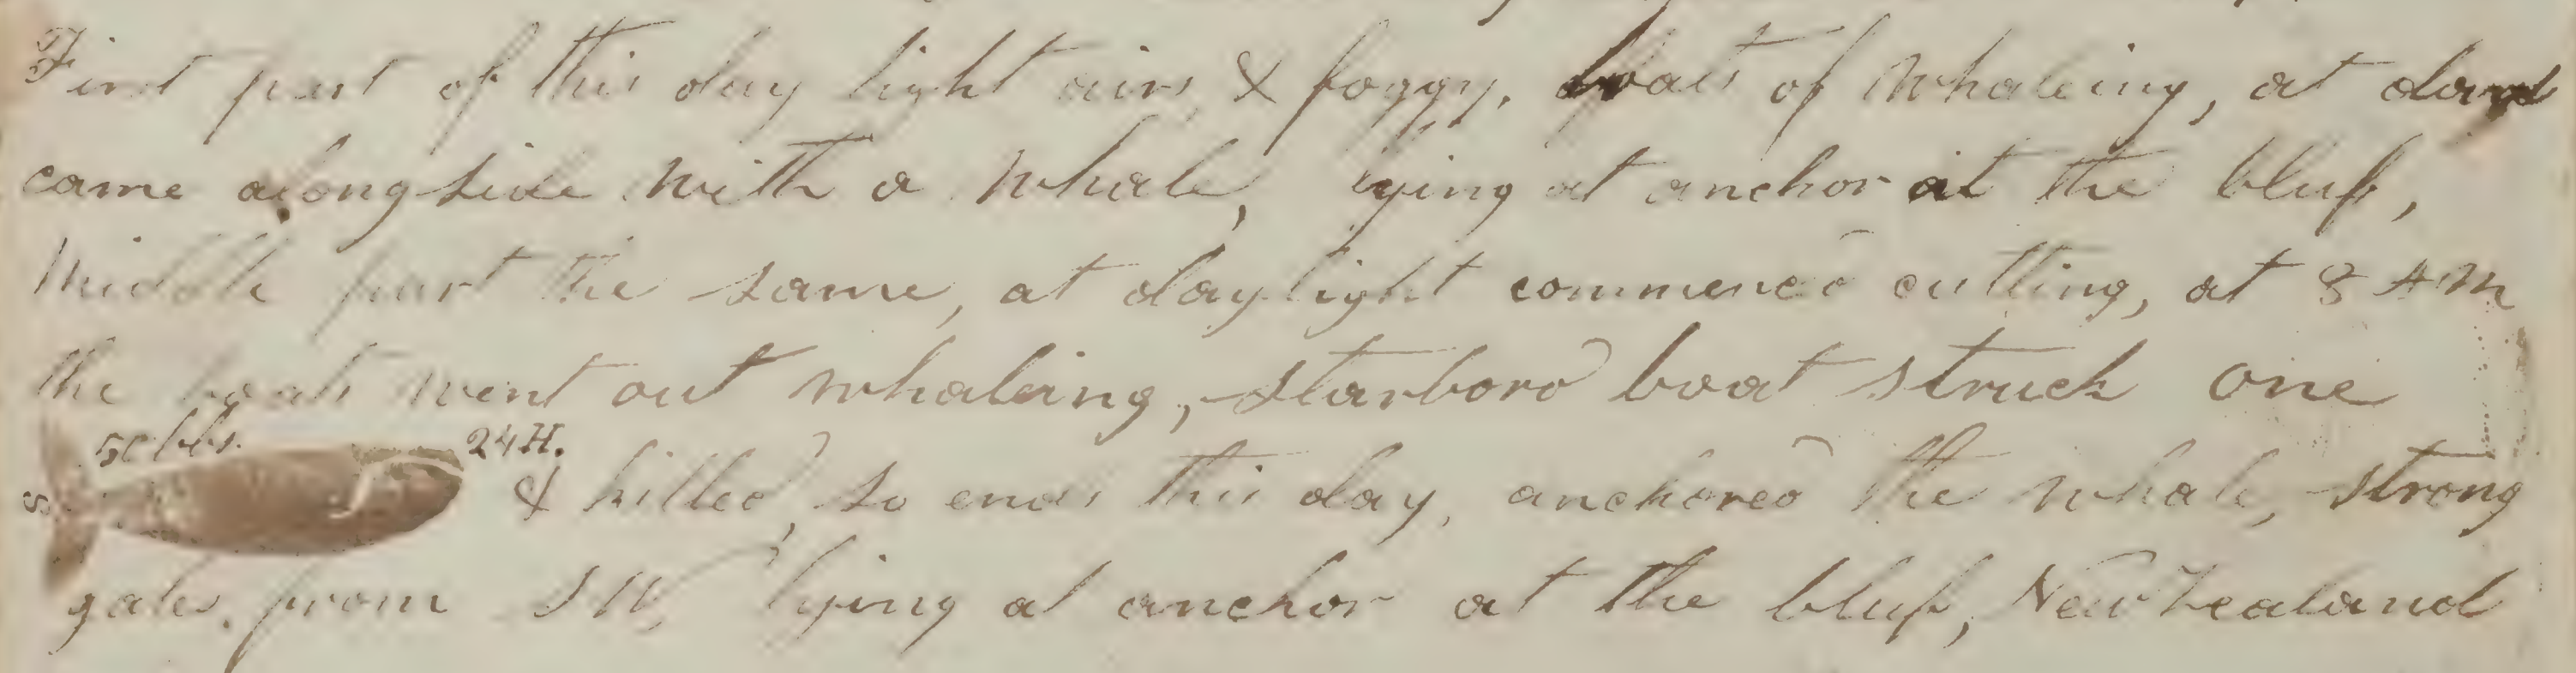 First part of this day light airs & foggy, boats of whaleing, at dark
came alongside with a whale, lying at anchor at the bluf,
Middle part the same, at daylight commenced cutting, at 8 AM
the boats went out whaleing, starbord boat struck one
50 bbls. 24 H.
S & killed, so ends this day, anchored the whale, strong
gales from SW, lying at anchor at the bluf, New Zealand